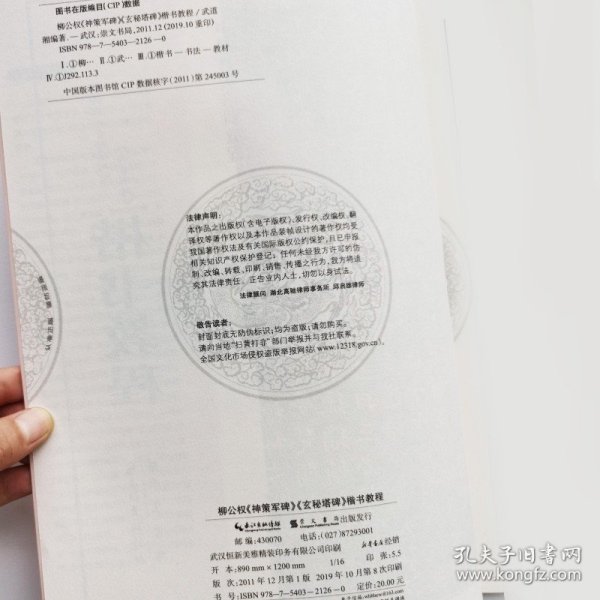 图书在版编目(CIP)数据
柳公权《神策军碑》《玄秘塔碑》楷书教程/武道
湘编著.—武汉:崇文书局,2011.12(2019.10重印)
ISBN 978-7-5403-2126-0
Ⅰ.①柳… Ⅱ.①武… Ⅲ.①楷书—书法—教材
Ⅳ.①J292.113.3
中国版本图书馆CIP数据核字(2011)第245003号
法律声明:
本作品之出版权(含电子版权)、发行权、改编权、翻
译权等著作权以及本作品装帧设计的著作权均受
我国著作权法及有关国际版权公约保护,且已申报
相关知识产权保护登记;任何未经我方许可的仿
制、改编、转载、印刷、销售、传播之行为,我方将追
究其法律责任。正告业内人士,切勿以身试法。
法律顾问 湖北高驰律师事务所 邱启雄律师
敬告读者:
封面封底无防伪标识;均为盗版;请勿购买。
请向当地"扫黄打非"部门举报并与我社联系。
全国文化市场侵权盗版举报网站(www.12318.gov.cn)。
柳公权《神策军碑》《玄秘塔碑》楷书教程
长江出版传媒 崇文书局 出版发行
邮编:430070 电话:(027)87293001
武汉恒新美雅精装印务有限公司印刷 新华书店经销
开本:890mm×1200mm 1/16 印张:5.5
版次:2011年12月第1版 2019年10月第8次印刷
书号:ISBN 978-7-5403-2126-0 定价:20.00元
孔夫子旧书网
www.kongfz.com